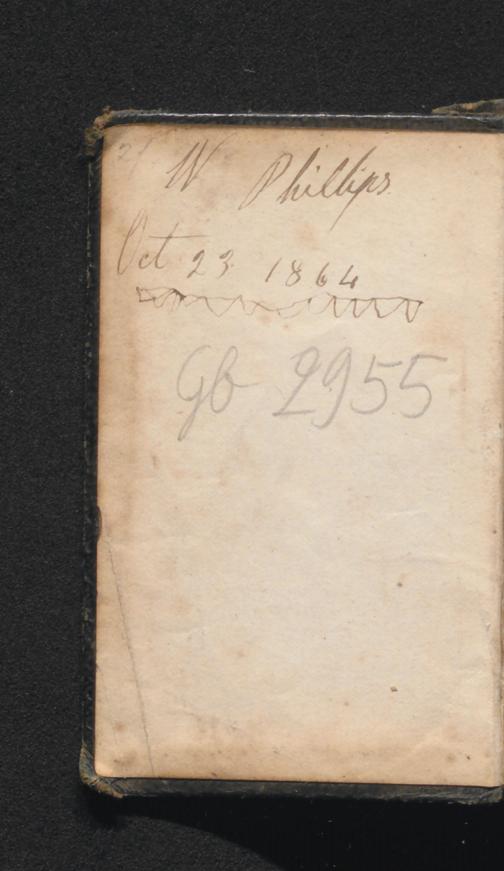 W Phillips
Oct 23 1864
Gb 2955